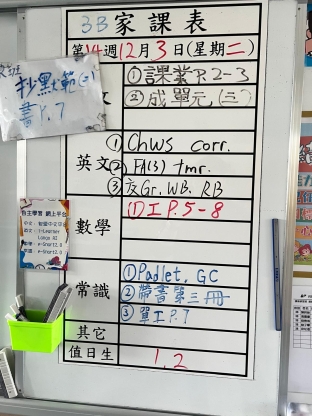 3B家課表
第14週12月3日(星期二)
抄默範(二)
書P.7
文
①課業P.2-3
②成單元(三)
英文
①Chws corr.
②FA(3) tmr.
③交Gr. WB. RB
數學
①工P.5-8
自主學習 網上平台
常識
①Padlet, GC
②帶書第三冊
③單工P.7
其它
值日生
1, 2